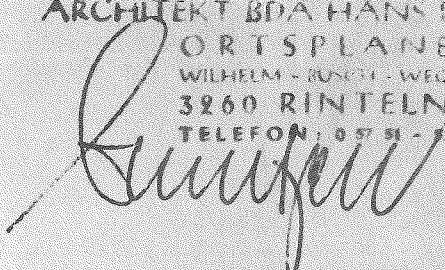 ARCHITEKT BDA HANS
ORTSPLANE
WILHELM - BUSCH - WEG
3260 RINTELN
TELEFON: 0 57 51 -